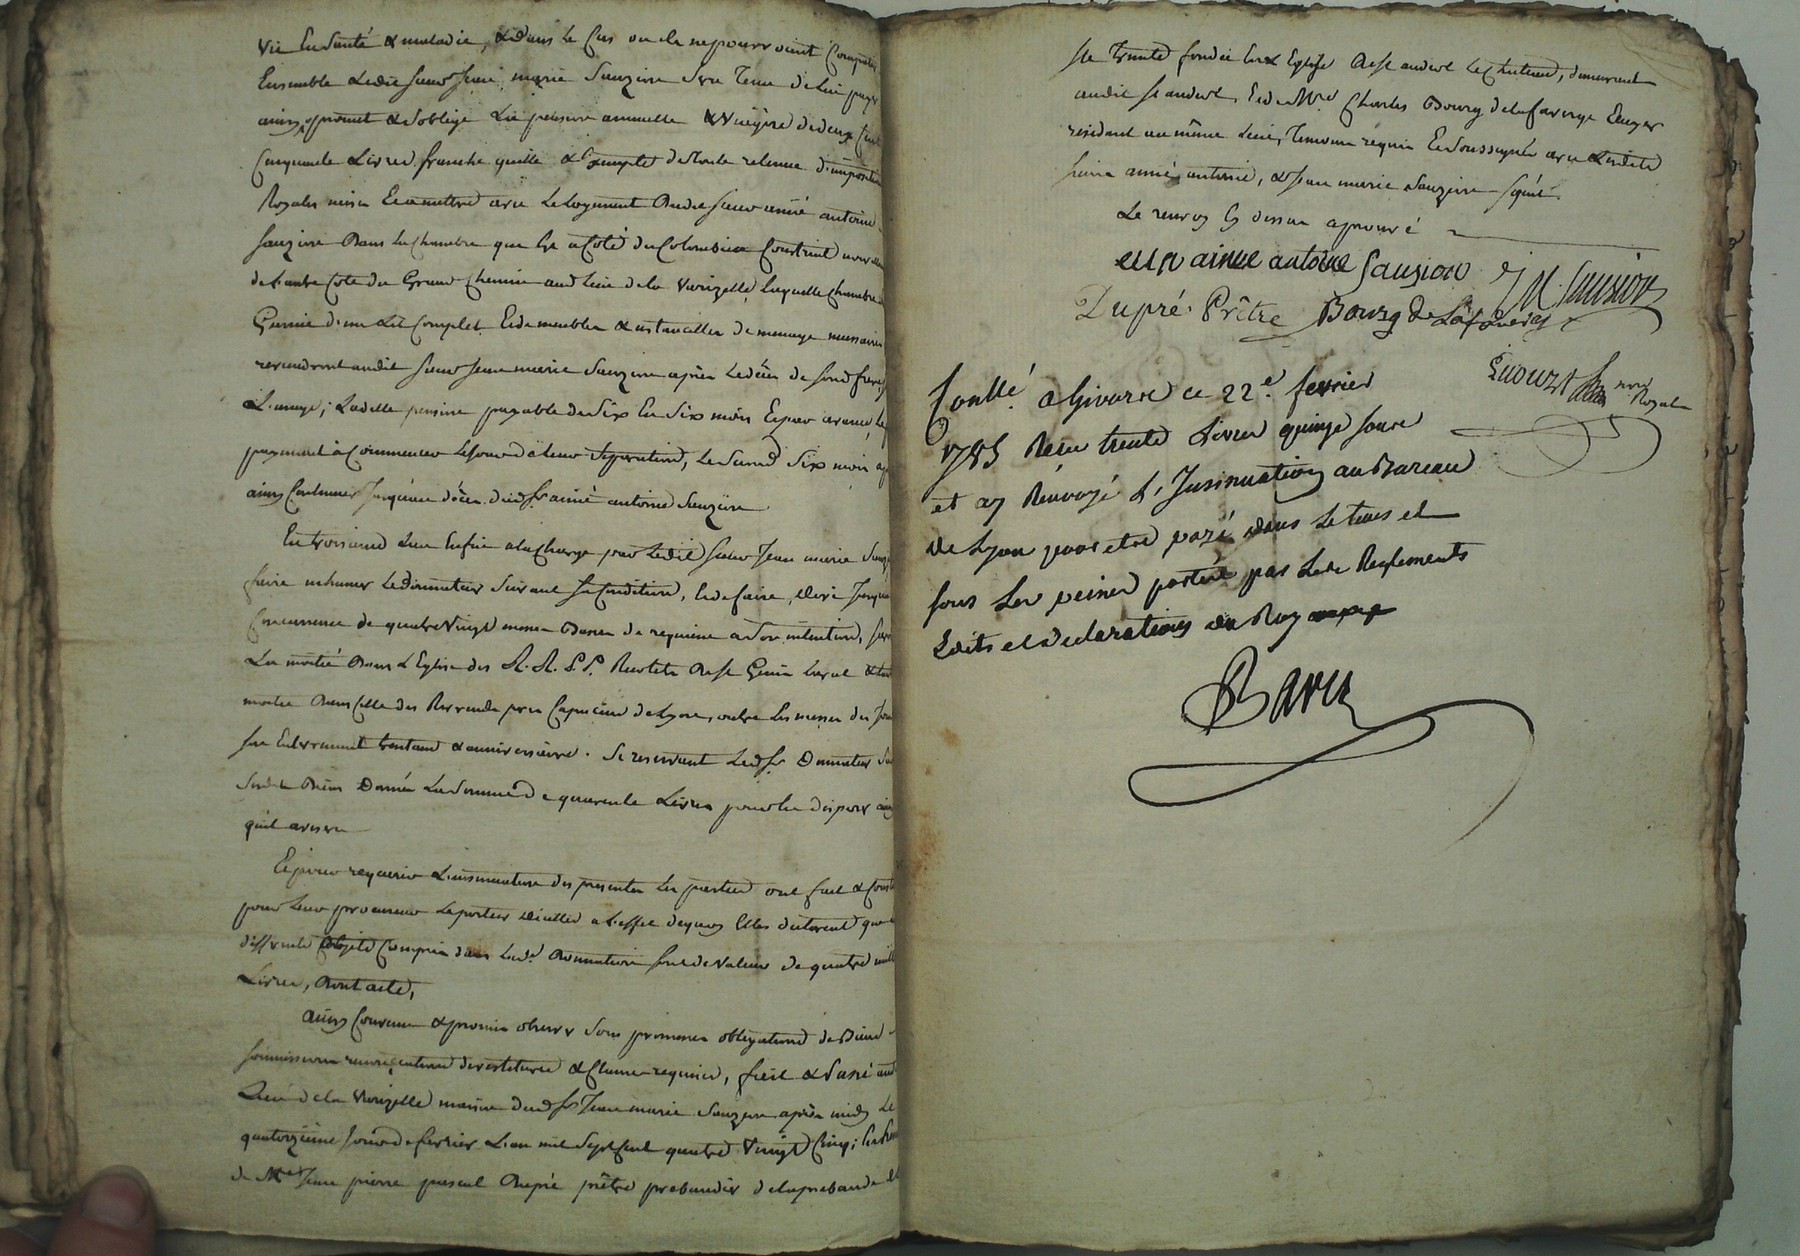 vie En Santé & maladie, & dans le Cas ou ils ne pourroient Compatir
Ensemble Ledit Sieur Jean marie Sauzion Sera Tenu de Lui payer
ainsy promet & Soblige La pension annuelle & Viagère de deux Cent
Cinquante Livres franche quitte & Exempte de toute retenue d'imposition
Royales mises Et a mettre avec Le Logement Audit Sieur aimé antoine
Sauzion Dans la Chambre que Est a Coté du Colombier Construit
de L'autre Coté du Grand Chemin aud Lieu de la Varizelle, Laquelle Chambre
Garnie d'un Lit Complet Et de meubles & ustancilles de menage necessaires
reviendront audit Sieur Jean marie Sauzion après Le décès de Sond frere
L'usage; Ladite pension payable de Six En Six mois Et par avance, Le
payement à Commencer Le jour de Leur Séparation, Le Second Six mois
ainsy Continuer Jusqu'au décès dud Sr aimé antoine Sauzion
En troisieme Lieu Enfin a la Charge par Ledit Sieur Jean marie
faire inhumer Le Donnateur Suivant Sa Condition, Et de faire dire Jusqu'a
Concurrence de quatre Vingt messes Basses de requiem a Son intention,
La moitié Dans L'Eglise des R. R. P. P. Recolets De St Genis Laval &
moitié Dans Celle des Reverends peres Capucins de Lyon, outre Les messes des Jours
Son Enterrement trentain & anniversaire. Se reservant Ledt Sr Donnateur
Sesdits Biens Donnés La Somme de quarente Livres pour En disposer
qu'il avisera
Et pour requerir L'insinuation des presentes Les parties ont fait & Constitué
pour Leur procureur Le porteur dicelles a L'effet de quoy Elles déclarent que
differents objets Compris dans Lad. Donnation Sont de Valeur de quatre mille
Livres, Dont acte,
Ainsy Convenu & promis observer Sous promesses obligations de Biens
Soumissions renonciations & Clauses requises, fait & Passé audit
Lieu de la Varizelle maison dud Sr Jean marie Sauzion après midy Le
quatorzieme Jour de fevrier L'an mil Sept Cent quatre Vingt Cinq;
de Mre Jean pierre pascal Dupré prêtre prebandier de la prebande
Ste Trinité fondée En L'Eglise De St andeol Le Chateau, demeurant
audit St andeol, Et de Mre Charles Bourg de la faverge Ecuyer
résidant au même Lieu, Temoins requis Et Soussignés avec Lesdits
Sieurs aimé antoine, & Jean marie Sauzion Signé
Le renvoy Cy dessus aprouvé
aimee antoine Sauzion JM. Sauzion
Dupré Prêtre Bourg De Lafaverge
Royal
Conllé a Givors ce 22e. fevrier
1785 Reçu trente Livres quinze Sous
et ay Renvoyé L'Insinuation au Bureau
de Lyon pour etre payé dans Le tems et
Sous Les peines portées par Les Reglements
Edits et Declarations du Roy